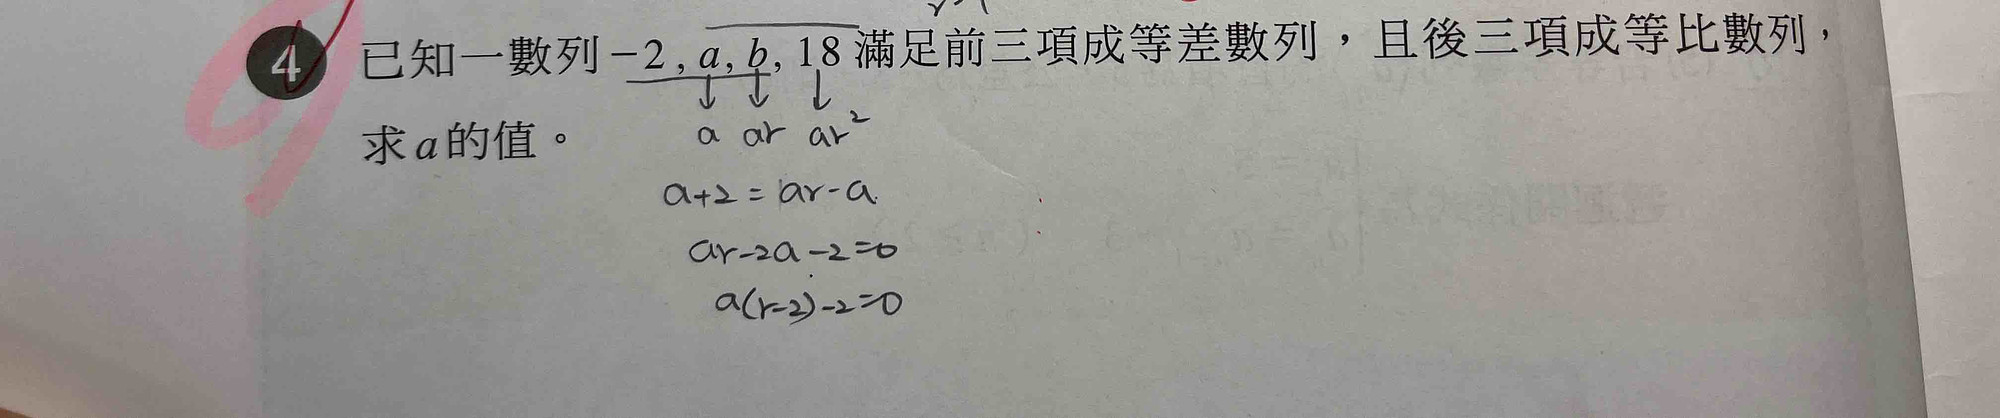 4 已知一數列 −2 , a , b , 18 滿足前三項成等差數列，且後三項成等比數列，
求 a 的值。
a ar ar²
a+2 = ar-a
ar-2a-2=0
a(r-2)-2=0